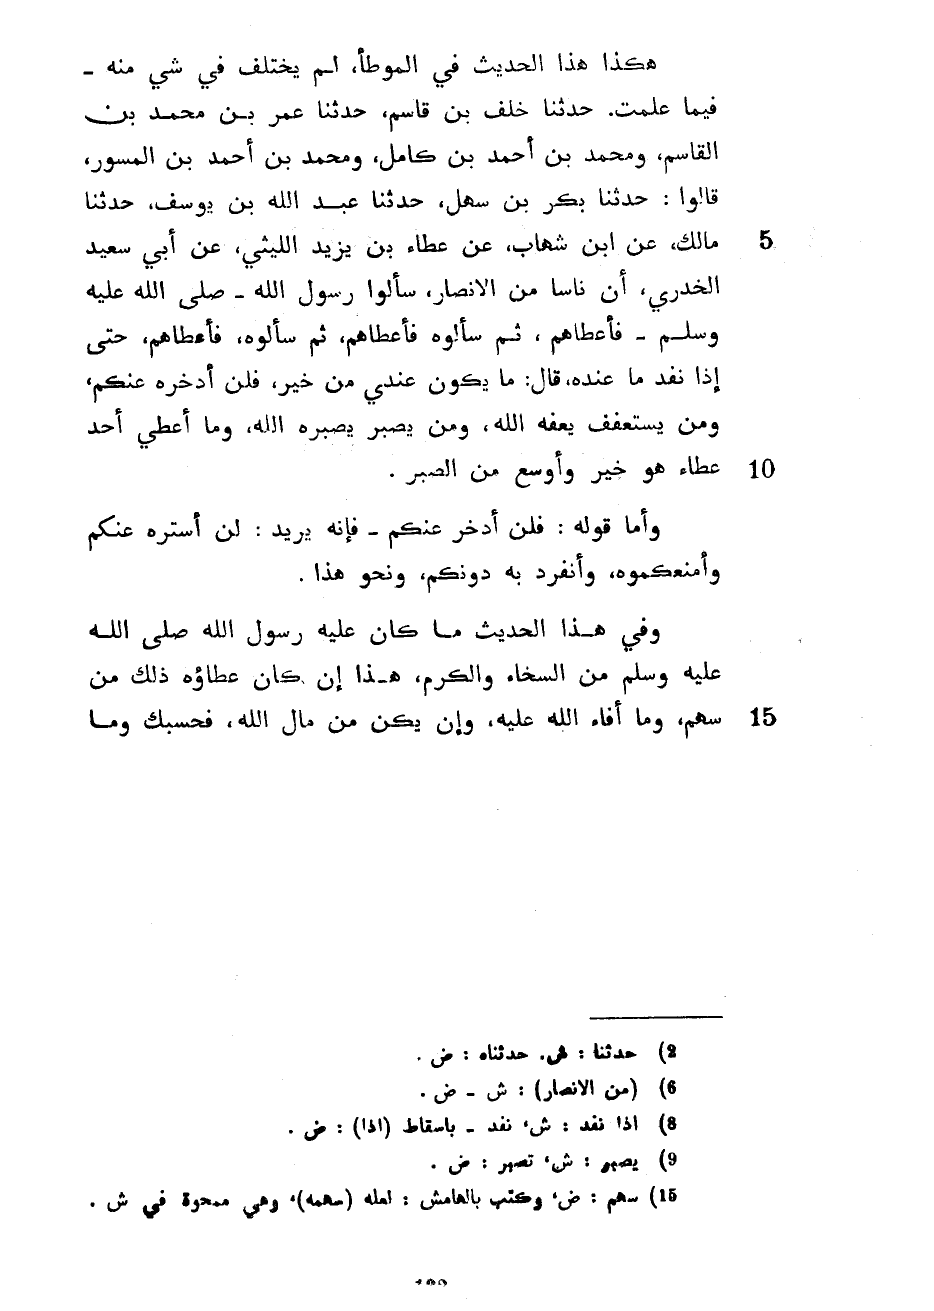 هكذا هذا الحديث في الموطأ، لـم يختلف في شي منه ـ
فيما علمت. حدثنا خلف بن قاسم، حدثنا عمر بـن محمـد بن
القاسم، ومحمد بن أحمد بن كامل، ومحمد بن أحمد بن المسور،
قالوا : حدثنا بكر بن سهل، حدثنا عبـد الله بن يوسف، حدثنا
مالك، عن ابن شهاب، عن عطاء بن يزيد الليثي، عن أبي سعيد 5
الخدري، أن ناسا من الانصار، سألوا رسول الله ـ صلى الله عليه
وسلـم ـ فأعطاهم ، ثـم سألوه فأعطاهم، ثم سألوه، فأعطاهم، حتى
إذا نفد ما عنده، قال: ما يكون عندي من خير، فلن أدخره عنكم،
ومن يستعفف يعفه الله، ومن يصبر يصبره الله، وما أعطي أحد
عطاء هو خير وأوسع من الصبر . 10
وأما قوله : فلن أدخر عنكم ـ فإنه يريد : لن أستره عنكم
وأمنعكموه، وأنفرد به دونكم، ونحو هذا .
وفي هـذا الحديث مـا كان عليه رسول الله صلى اللـه
عليه وسلم من السخاء والكرم، هـذا إن كان عطاؤه ذلك من
سهم، وما أفاء الله عليه، وإن يكن من مال الله، فحسبك ومـا 15
2) حدثنا : ش. حدثناه : ض .
6) (من الانصار) : ش ـ ض .
8) اذا نفد : ش، نفد ـ باسقاط (اذا) : ض .
9) يصبر : ش، تصبر : ض .
15) سهم : ض، وكتب بالهامش : لعله (سهمه)، وهي ممحوة في ش .